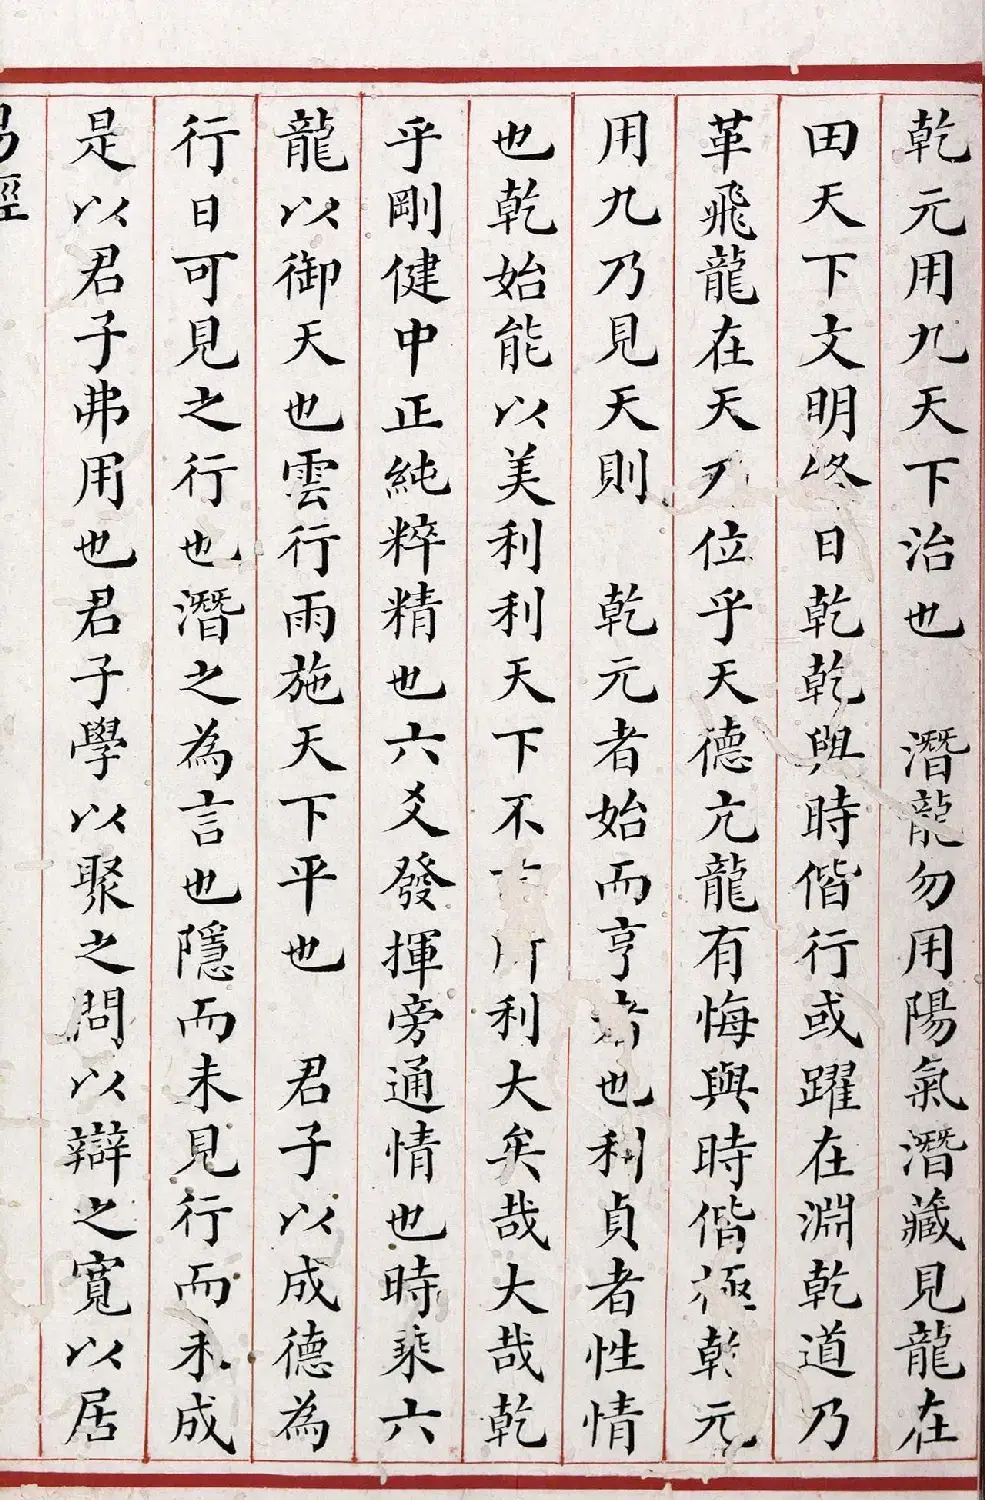 乾元用九天下治也　潛龍勿用陽氣潛藏見龍在
田天下文明終日乾乾與時偕行或躍在淵乾道乃
革飛龍在天乃位乎天德亢龍有悔與時偕極乾元
用九乃見天則　乾元者始而亨者也利貞者性情
也乾始能以美利利天下不言所利大矣哉大哉乾
乎剛健中正純粹精也六爻發揮旁通情也時乘六
龍以御天也雲行雨施天下平也　君子以成德為
行日可見之行也潛之為言也隱而未見行而未成
是以君子弗用也君子學以聚之問以辯之寬以居
易經